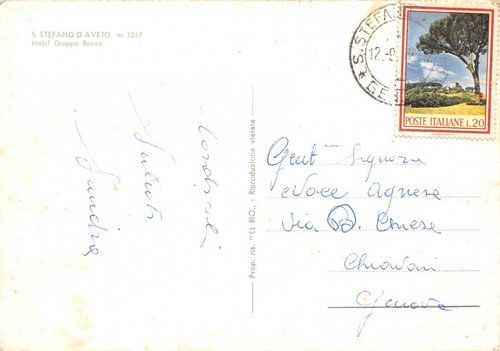 S. STEFANO D'AVETO m. 1017
Hotel Groppo Rosso
Cordiali
Saluti
Sandra
Prop. ris. "EL RIO" - Riproduzione vietata
S. STEFANO
12.
GE
POSTE ITALIANE L.20
Gent Signora
Agnese
Via B.
Chiavari
Genova